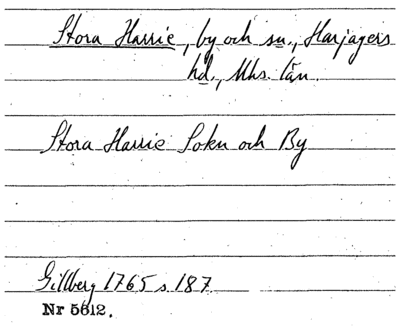 Stora Harrie, by och sn., Harjagers
hd., Mhs. län.
Stora Harrie Sokn och By
Gillberg 1765 s. 187
Nr 5612.